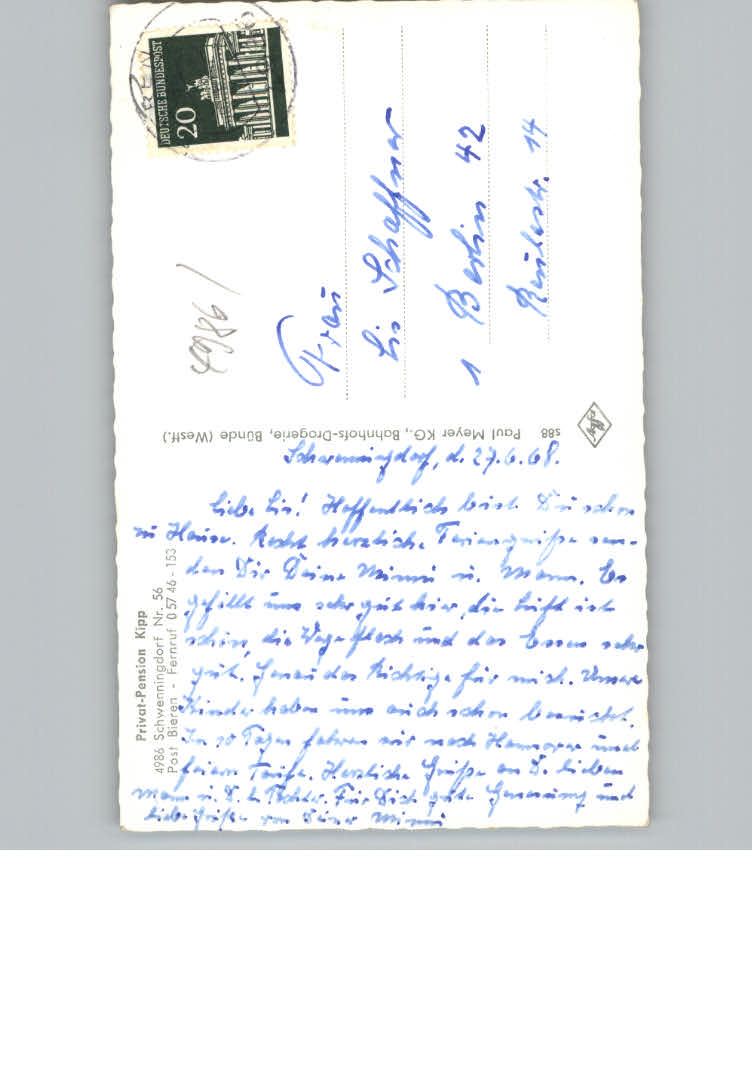 DEUTSCHE BUNDESPOST
20
4986/
Frau
Lis Schaffner
1 Berlin 42
Reulestr. 14
s88 Paul Meyer KG., Bahnhofs-Drogerie, Bünde (Westf.)
Privat-Pension Kipp
4986 Schwenningdorf Nr. 56
Post Bieren - Fernruf 0 57 46 - 153
Schwenningdorf, d. 27.6.68.
Liebe Lis! Hoffentlich bist Du schon
zu Hause. Recht herzliche Feriengrüße sen-
den Dir Deine Minni u. Mann. Es
gefällt uns sehr gut hier, die Luft ist
schön, die Wege flach und das Essen sehr
gut. Genau das Richtige für mich. Unsere
Kinder haben uns auch schon besucht.
In 10 Tagen fahren wir nach Hannover und
feiern Taufe. Herzliche Grüße an D. lieben
Mann u. D. l. Tochter. Für Dich gute Genesung und
liebe Grüße von Deiner Minni